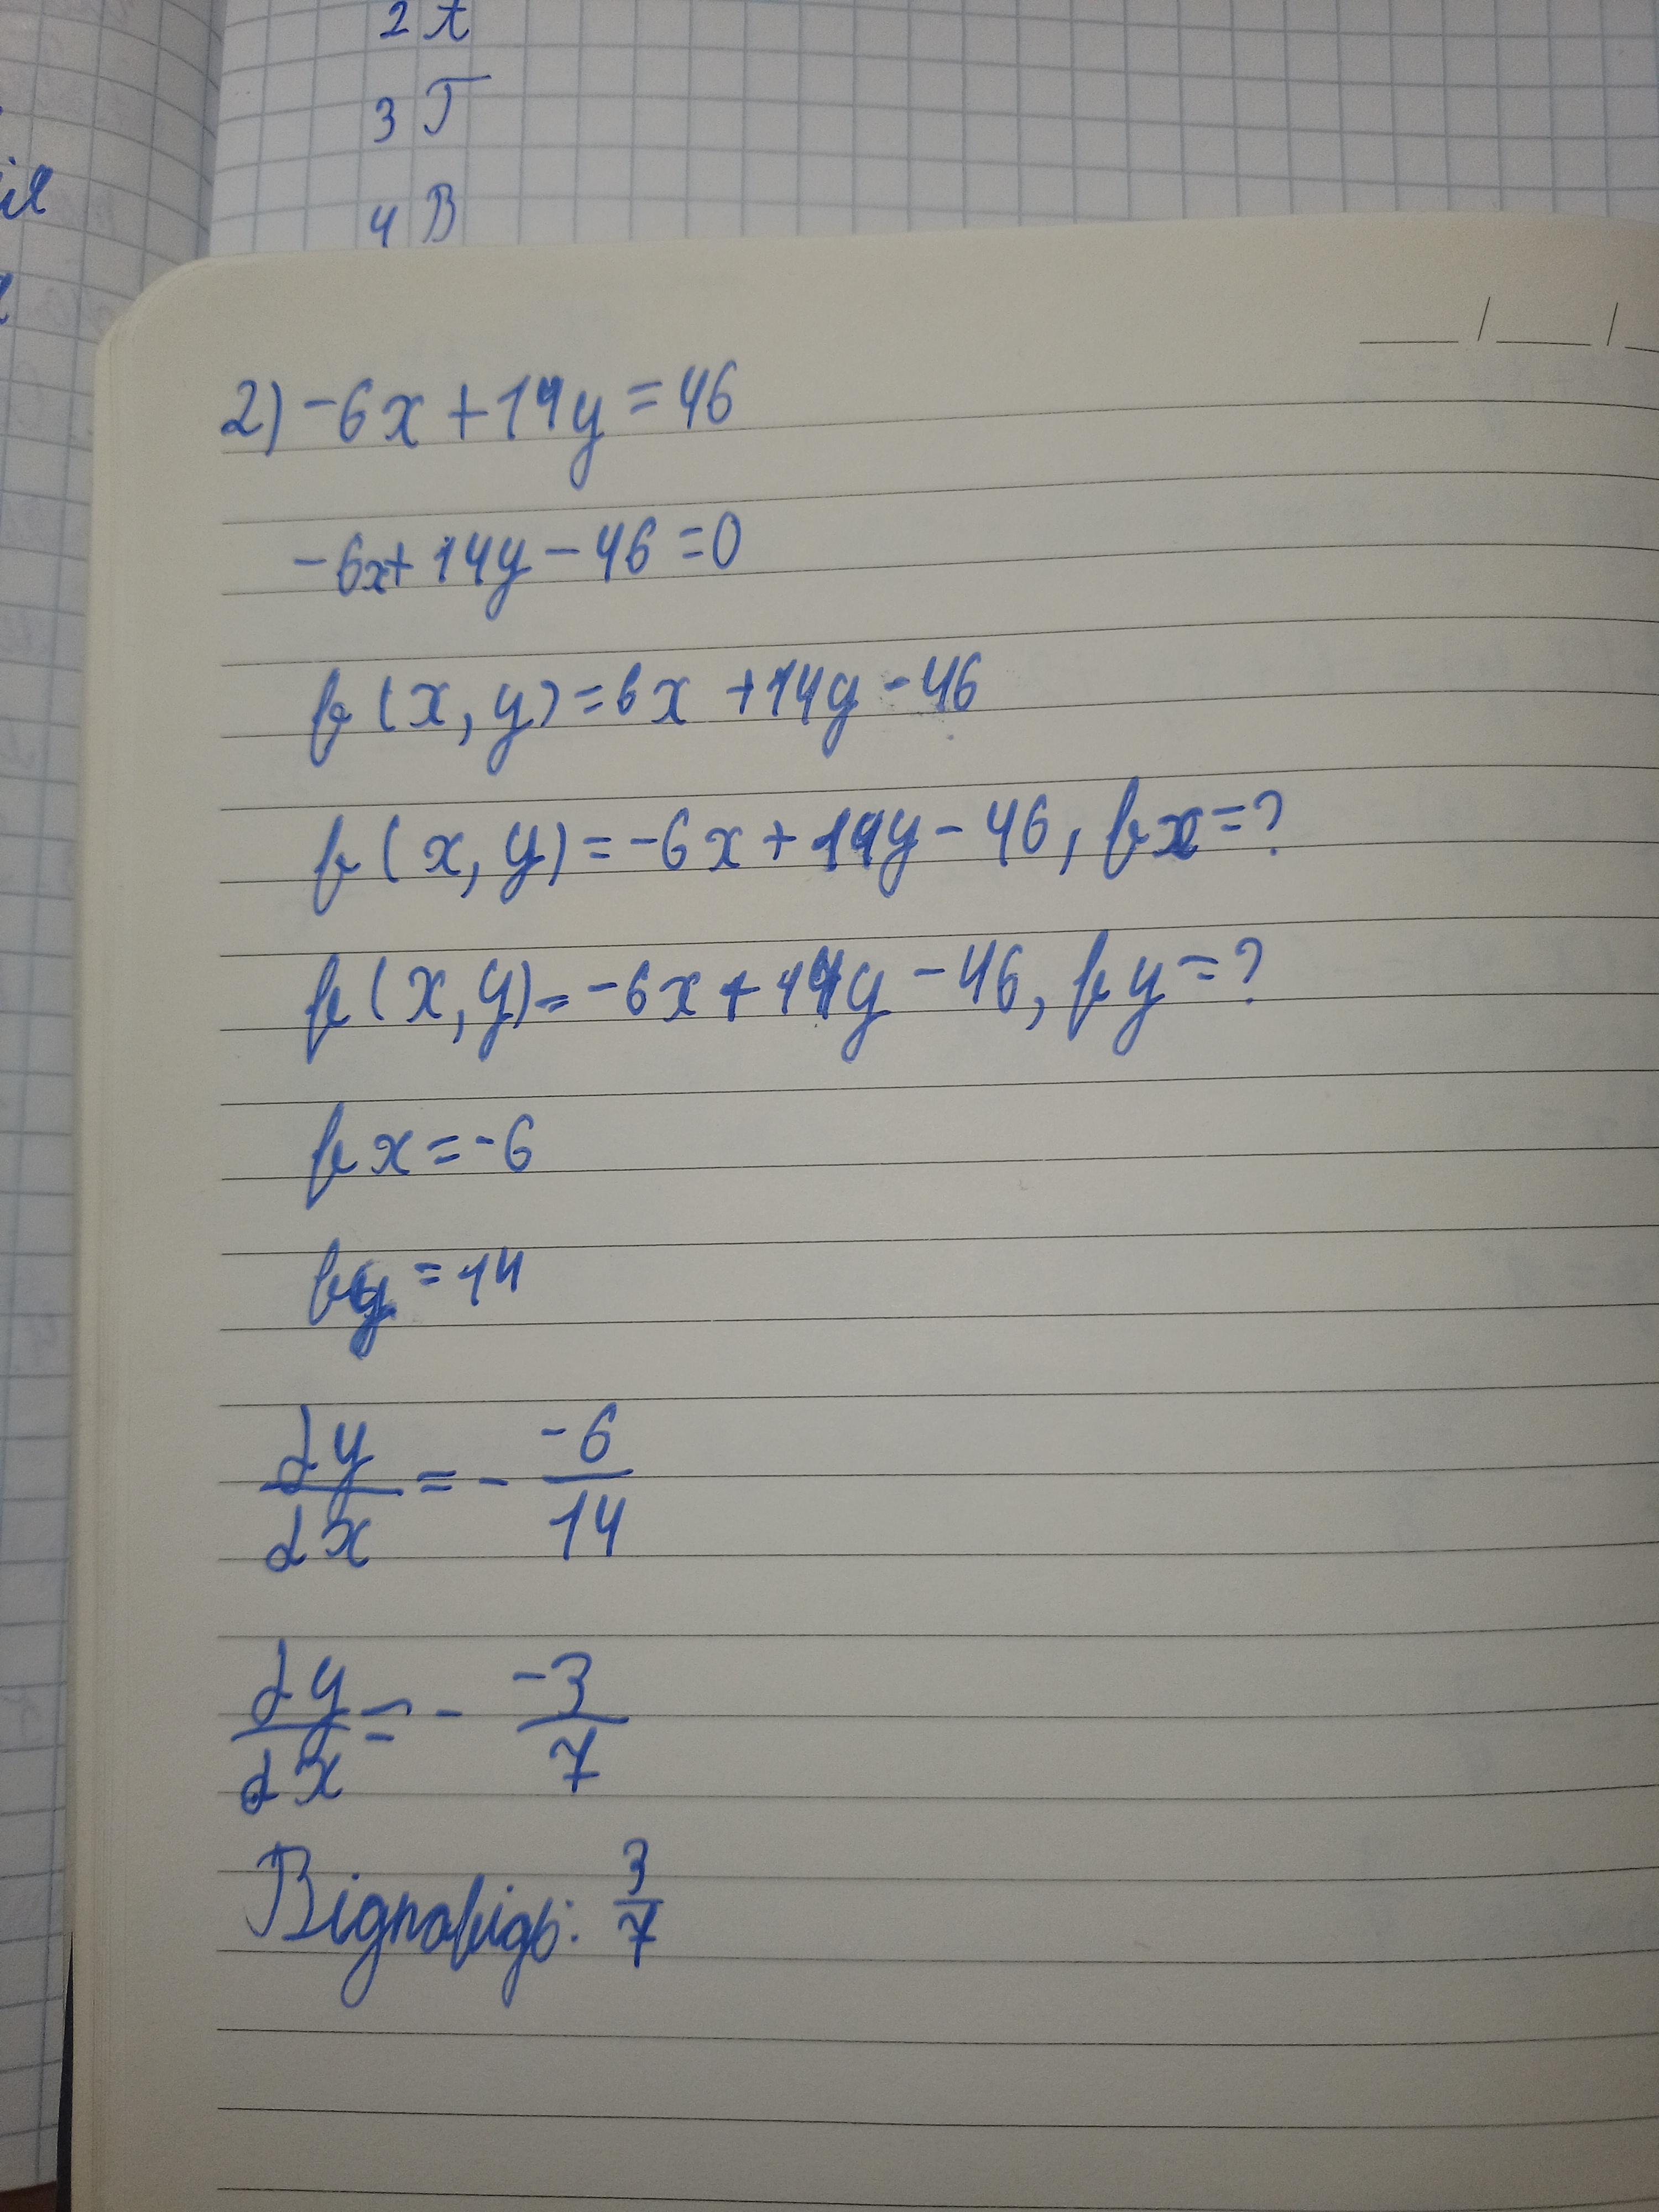 2 А
3 Г
4 В
2) -6x + 14y = 46
-6x + 14y - 46 = 0
f(x, y) = 6x + 14y - 46
f(x, y) = -6x + 14y - 46, fx = ?
f(x, y) = -6x + 14y - 46, fy = ?
fx = -6
fy = 14
dy/dx = - -6/14
dy/dx = - -3/7
Відповідь: 3/7